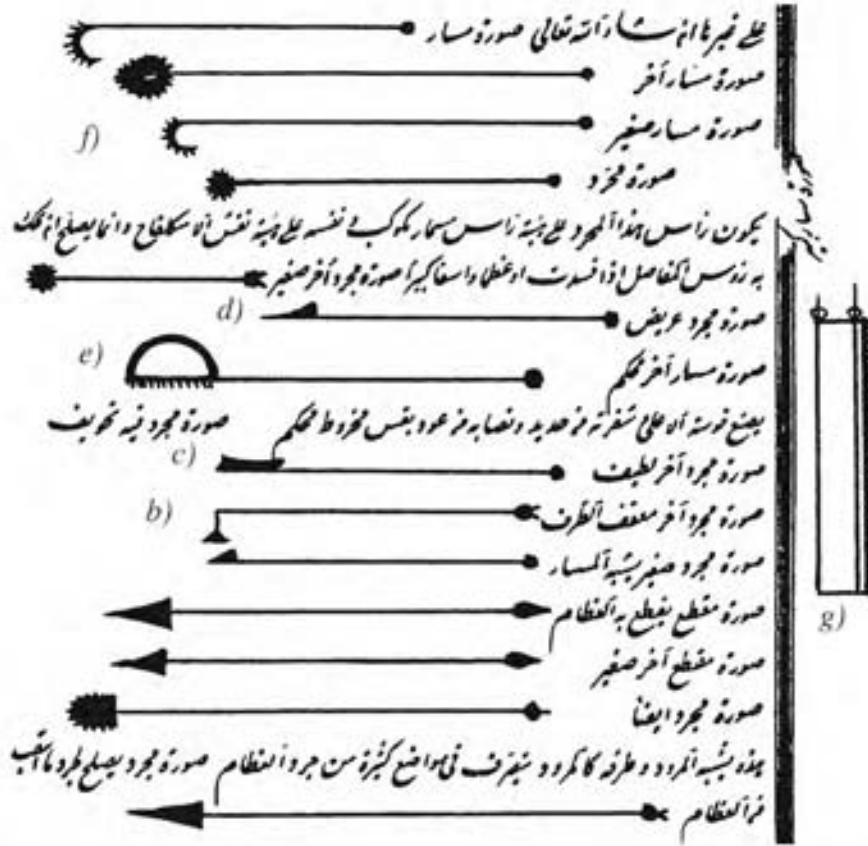 على غيرها ان شاء الله تعالى صورة منشار
صورة منشار أخر
f)
صورة منشار صغير
صورة مجرد
يكون رأس هذا المجرد على هيئة رأس مسمار كوكبي نقشه على هيئة نقش وانما يصلح ان يحك
به رؤس المفاصل اذا فسدت او عظما واسعا كبيرا صورة مجرد أخر صغير
d)
صورة مجرد عريض
e)
صورة منشار أخر محكم
يصنع قوسه الاعلى شفرته من حديد ونصابه من عود بقس مخروط محكم صورة مجرد فيه تجويف
c)
صورة مجرد أخر لطيف
b)
صورة مجرد أخر معقف الطرف
صورة مجرد صغير يشبه المسبار
صورة مقطع يقطع به العظام
صورة مقطع أخر صغير
صورة مجرد ايضا
هذه يشبه المرود وطرفه كالمرود يتصرف في مواضع كثيرة من جرد العظام صورة مجرد يصلح لجرد ما
من العظام
صورة منشار كبير
g)